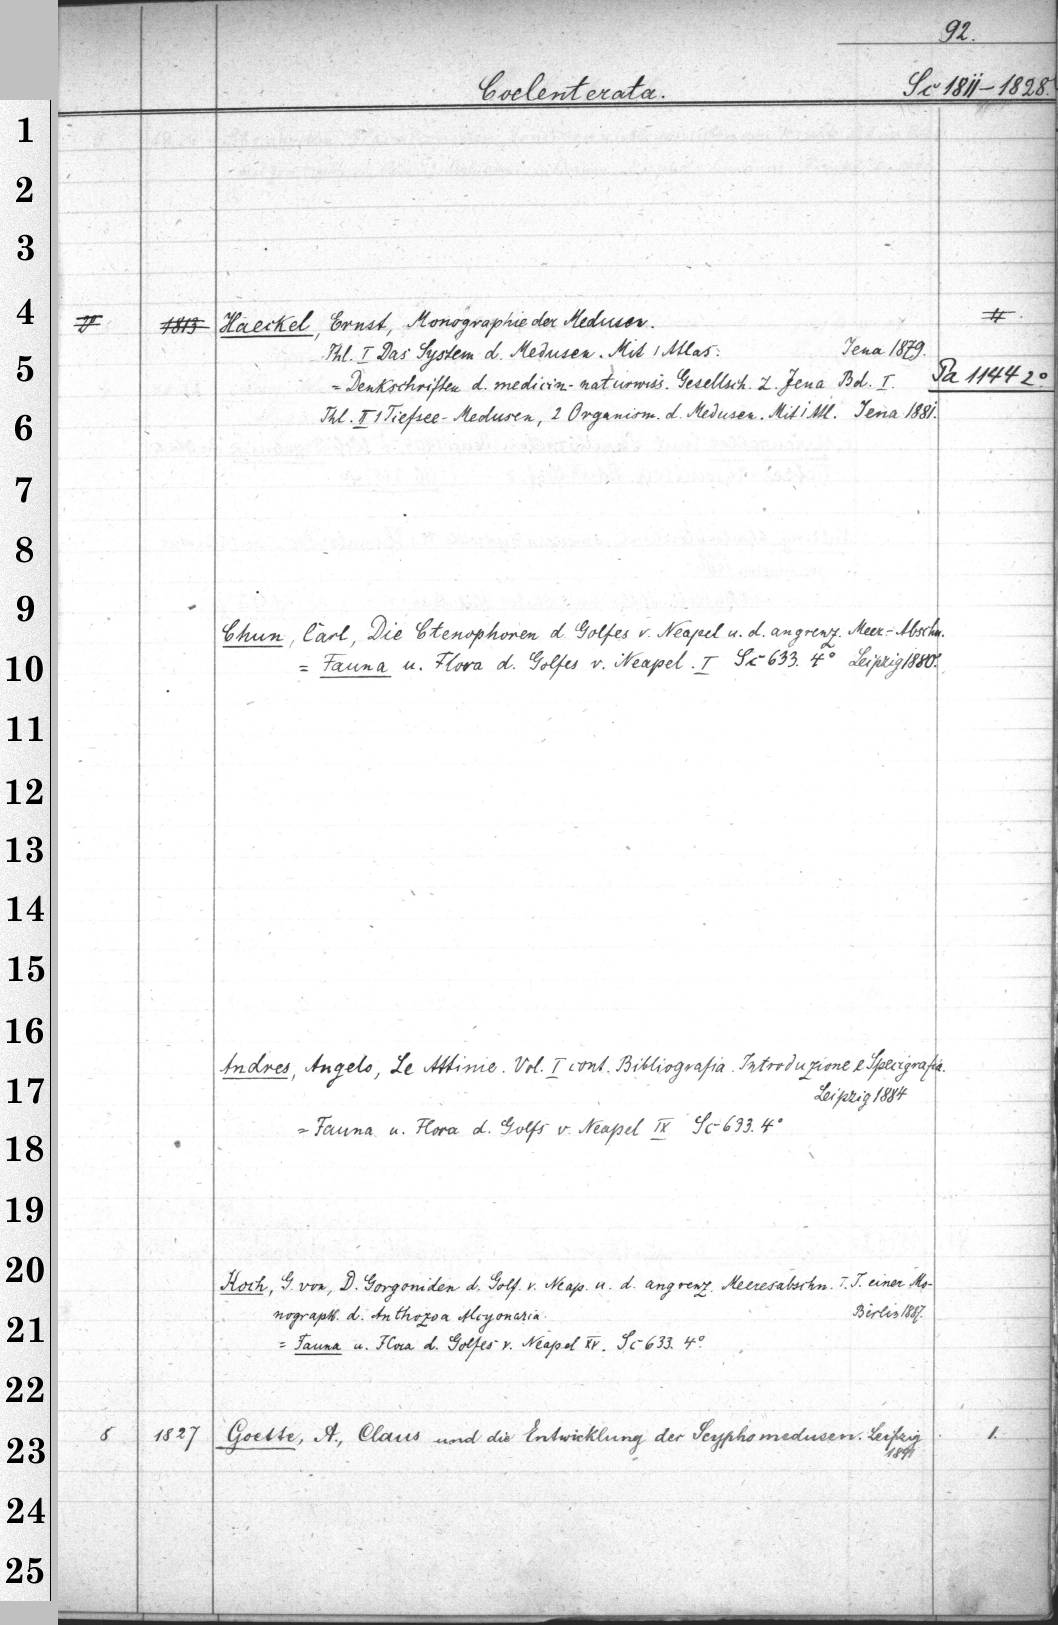 92.
Coelenterata. Sc 1811-1828.
1
2
3
4
2° 1813 Haeckel, Ernst, Monographie der Medusen. 4.
Thl. I Das System d. Medusen. Mit 1 Atlas. Jena 1879.
5
= Denkschriften d. medicin-naturwiss. Gesellsch. z. Jena Bd. I. Pa 1144 2°
6
Thl. II 1 Tiefsee-Medusen, 2 Organism. d. Medusen. Mit 1 Atl. Jena 1881.
7
8
9
Chun, Carl, Die Ctenophoren d Golfes v. Neapel u. d. angrenz. Meer-Abschn.
10
= Fauna u. Flora d. Golfes v. Neapel. I Sc 633. 4° Leipzig 1880.
11
12
13
14
15
16
Andres, Angelo, Le Attinie. Vol. I cont. Bibliografia Introduzione e Specigrafia.
17
Leipzig 1884
= Fauna u. Flora d. Golfs v. Neapel IX Sc 633. 4°
18
19
20
Koch, G. von, D. Gorgoniden d. Golf. v. Neap. u. d. angrenz. Meeresabschn. I. T. einer Mo-
nograph. d. Anthozoa Alcyonaria. Berlin 1887.
21
= Fauna u. Flora d. Golfes v. Neapel XV. Sc 633. 4°
22
8 1827 Goette, A., Claus und die Entwicklung der Scyphomedusen. Leipzig 1.
23
1891
24
25